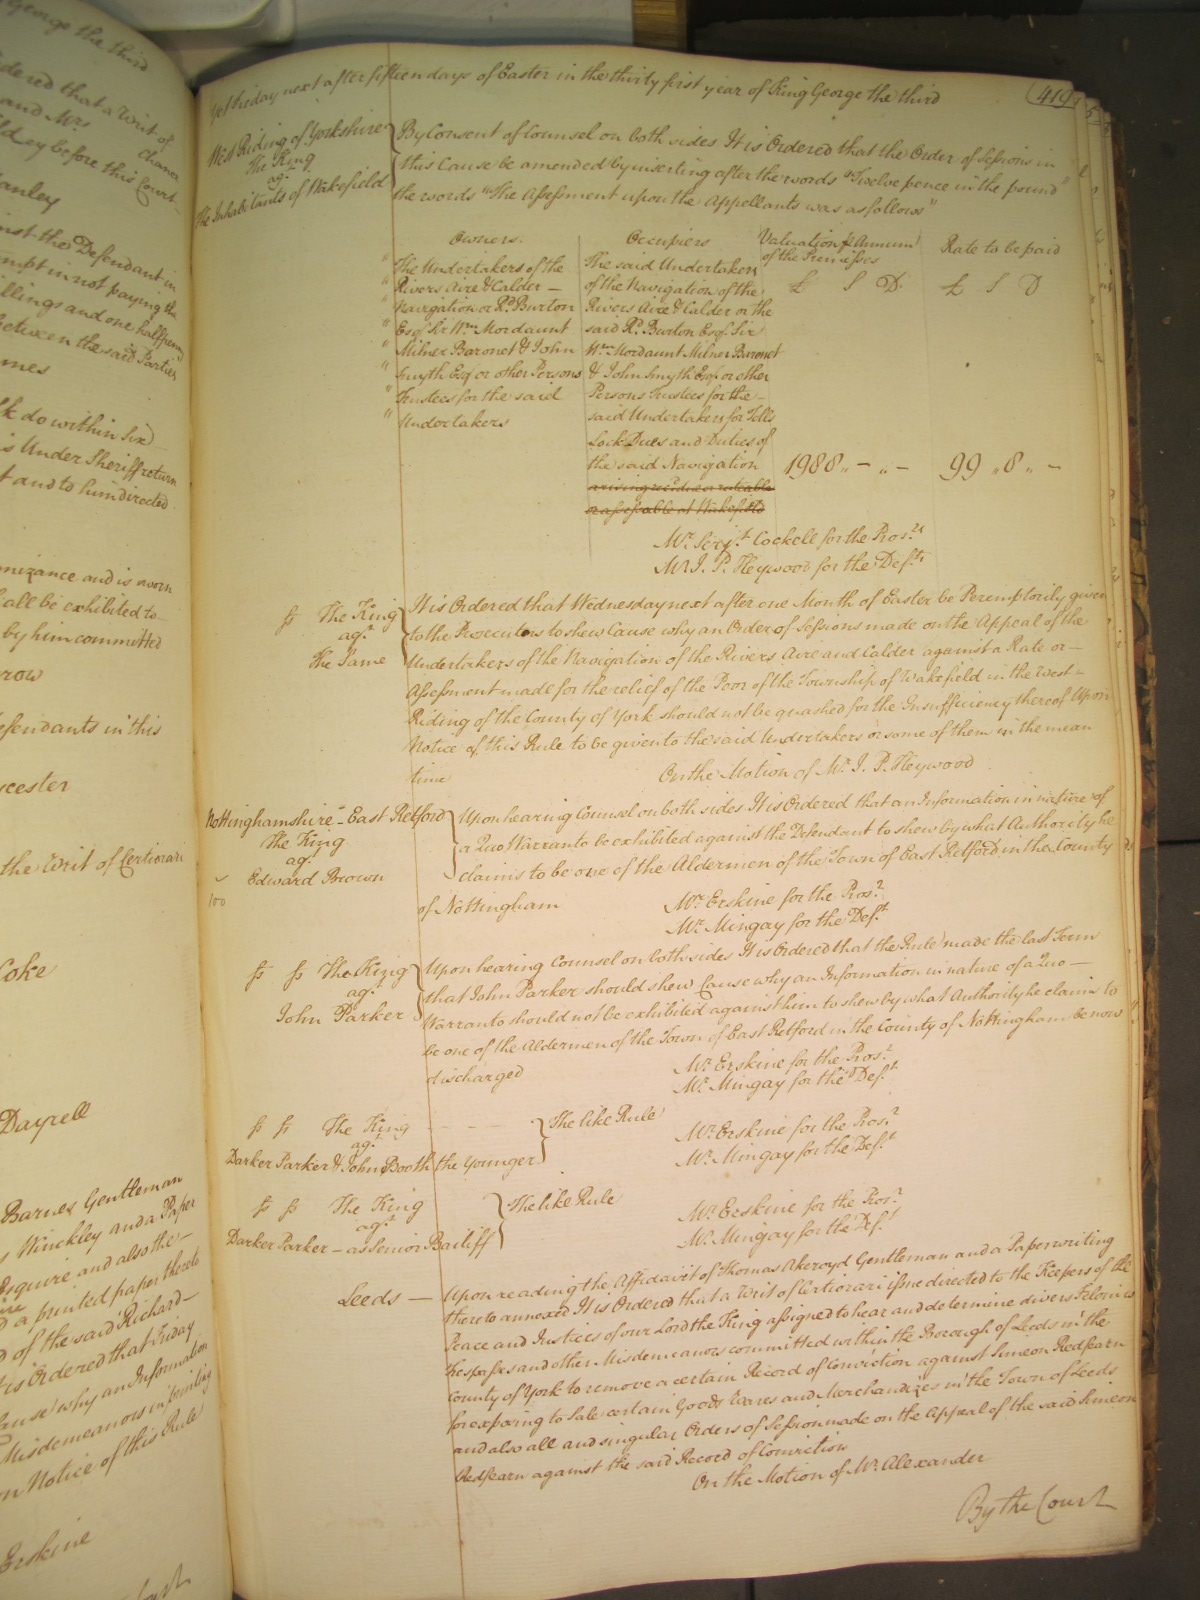 George the third
dered that a Writ of
and Mrs Chance
before this Court
anley
nst the Defendant in
mpt in not paying the
llings and one halfpenny
between the said Parties
mes
k do within Six
is Under Sheriff return
t and to him directed
nizance and is worn
all be exhibited to
by him committed
row
efendants in this
cester
the Writ of Certiorari
Coke
Dayrell
Barnes Gentleman
Winckley and a Paper
Esquire and also the
a printed paper thereto
of the said Richard
is Ordered that Friday
ause why an Information
Misdemeanors in printing
on Notice of this Rule
Erskine
Yet the day next after fifteen days of Easter in the thirty first year of King George the third
419
West Riding of Yorkshire
The King
agt
The Inhabitants of Wakefield
By Consent of Counsel on both sides It is Ordered that the Order of Sessions in
this Cause be amended by inserting after the words "Twelve pence in the pound"
the words "The Assessment upon the Appellants was as follows"
Owners. Occupiers Valuation P Annum of the Premisses Rate to be paid
£ S D. £ S D
" The Undertakers of the
" Rivers Aire & Calder –
" Navigation or Rd. Burton
" Esqr. Sir Wm. Mordaunt
" Milner Baronet & John
" Smyth Esqr or other Persons
" Trustees for the said
" Undertakers
The said Undertakers
of the Navigation of the
Rivers Aire & Calder or the
said Rd. Burton Esqr. Sir
Wm. Mordaunt Milner Baronet
& John Smyth Esqr. or other
Persons Trustees for the –
said Undertakers for Tolls
Lock Dues and Duties of
the said Navigation 1988 „ – „ – 99 „ 8 „ –
or assessable at Wakefield
Mr. Serjt. Cockell for the Prosrs
Mr I. P. Heywood for the Defts
The King
agt.
The Same
It is Ordered that Wednesday next after one Month of Easter be Peremptorily given
to the Prosecutors to shew Cause why an Order of Sessions made on the Appeal of the
Undertakers of the Navigation of the Rivers Aire and Calder against a Rate or –
Assessment made for the relief of the Poor of the Township of Wakefield in the West –
Riding of the County of York should not be quashed for the Insufficiency thereof Upon
Notice of this Rule to be given to the said Undertakers or some of them in the mean
time On the Motion of Mr. I. P. Heywood
Nottinghamshire – East Retford
The King
agt
Edward Brown
100
Upon hearing Counsel on both sides It is Ordered that an Information in nature of
a Quo Warranto be exhibited against the Defendant to shew by what Authority he
claims to be one of the Aldermen of the Town of East Retford in the County
of Nottingham Mr. Erskine for the Prosr.
Mr. Mingay for the Deft.
The King
agt.
John Parker
Upon hearing Counsel on both sides It is Ordered that the Rule made the last Term
that John Parker should shew Cause why an Information in nature of a Quo –
Warranto should not be exhibited against him to shew by what Authority he claims to
be one of the Aldermen of the Town of East Retford in the County of Nottingham be now
discharged Mr. Erskine for the Prosr.
Mr. Mingay for the Deft.
The King
agt.
Darker Parker & John Booth the Younger
The like Rule Mr. Erskine for the Prosr.
Mr. Mingay for the Deft.
The King
agt.
Darker Parker – as Senior Bailiff
The like Rule Mr. Erskine for the Prosr.
Mr. Mingay for the Deft.
Leeds — Upon reading the Affidavit of Thomas Akeroyd Gentleman and a Paperwriting
thereto annexed It is Ordered that a Writ of Certiorari issue directed to the Keepers of the
Peace and Justices of our Lord the King assigned to hear and determine divers Felonies
Trespasses and other Misdemeanors committed within the Borough of Leeds in the
County of York to remove a certain Record of Conviction against Simeon Redfearn
for exposing to Sale certain Goods Wares and Merchandizes in the Town of Leeds
and also all and singular Orders of Session made on the Appeal of the said Simeon
Redfearn against the said Record of Conviction
On the Motion of Mr. Alexander
By the Court